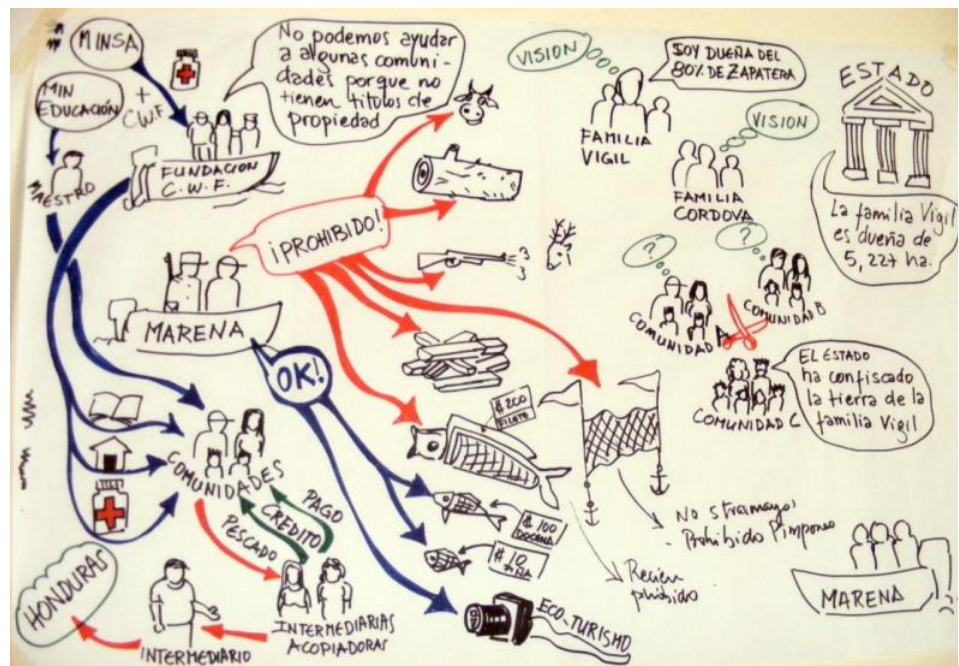 MINSA
MIN
EDUCACIÓN
+
C.W.F
MAESTRO
FUNDACION
C.W.F.
No podemos ayudar
a algunas comuni-
dades porque no
tienen titulos de
propiedad
¡PROHIBIDO!
MARENA
OK!
COMUNIDADES
PESCADO
CREDITO
PAGO
HONDURAS
INTERMEDIARIO
INTERMEDIARIAS
ACOPIADORAS
$ 200
FILETE
$ 100
DOCENA
$ 10
ECO.TURISMO
No
Prohibido
Recien
VISION
SOY DUEÑA DEL
80% DE ZAPATERA
FAMILIA
VIGIL
VISION
FAMILIA
CORDOVA
ESTADO
La familia Vigil
es dueña de
5,227 ha.
?
?
COMUNIDAD A
COMUNIDAD B
COMUNIDAD C
EL ESTADO
ha confiscado
la tierra de la
familia Vigil
MARENA